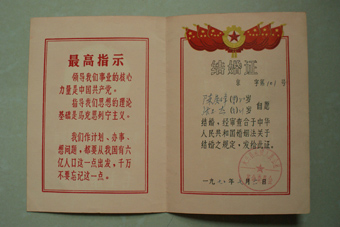 最高指示
领导我们事业的核心
力量是中国共产党。
指导我们思想的理论
基础是马克思列宁主义。
我们作计划、办事、
想问题，都要从我国有六
亿人口这一点出发，千万
不要忘记这一点。
结婚证
字第 号
自愿
结婚，经审查合于中华
人民共和国婚姻法关于
结婚之规定，发给此证。
一九七 年 月 日